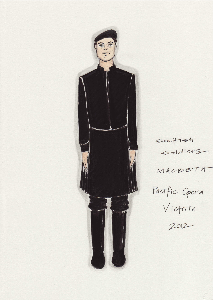 MACBETH -
Pacific Opera
Victoria
2012